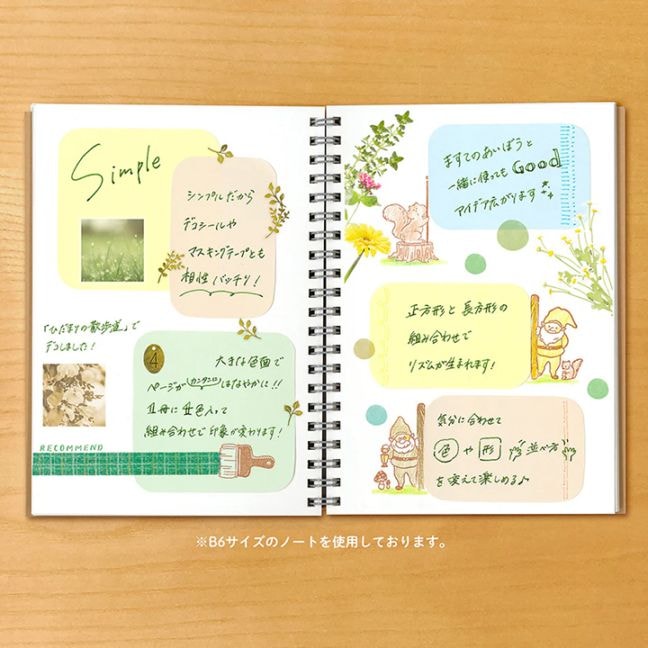 Simple
シンプルだから
デコシールや
マスキングテープとも
相性バッチリ！
「ひだまりの散歩道」で
デコしました！
4
大きな色面で
ページがカンタンにはなやかに!!
1冊に4色入って
組み合わせで印象が変わります！
RECOMMEND
ますてのあいぼうと
一緒に使ってもGood
アイデア広がります
正方形と長方形の
組み合わせで
リズムが生まれます！
気分に合わせて
色や形 並べ方
を変えて楽しめる♪
※B6サイズのノートを使用しております。